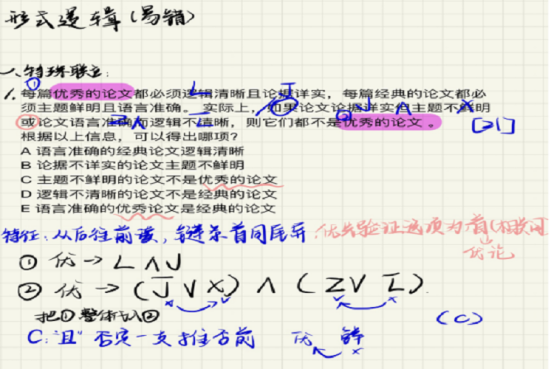 形式逻辑(易错)
一、特殊联立:
1. 每篇优秀的论文都必须逻辑清晰且论据详实，每篇经典的论文都必
须主题鲜明且语言准确。实际上，如果论文论据详实但主题不鲜明
或论文语言准确而逻辑不清晰，则它们都不是优秀的论文。
[21]
根据以上信息，可以得出哪项？
A 语言准确的经典论文逻辑清晰
B 论据不详实的论文主题不鲜明
C 主题不鲜明的论文不是优秀的论文
D 逻辑不清晰的论文不是经典的论文
E 语言准确的优秀论文是经典的论文
特征:从后往前读，链条首同尾异.优先验证选项为首(相同)
优论
① 优→L∧J
② 优→(J̅∨X)∧(Z∨L̅).
把①整体代入② (C)
C:"且"否定一支推否前 优 鲜